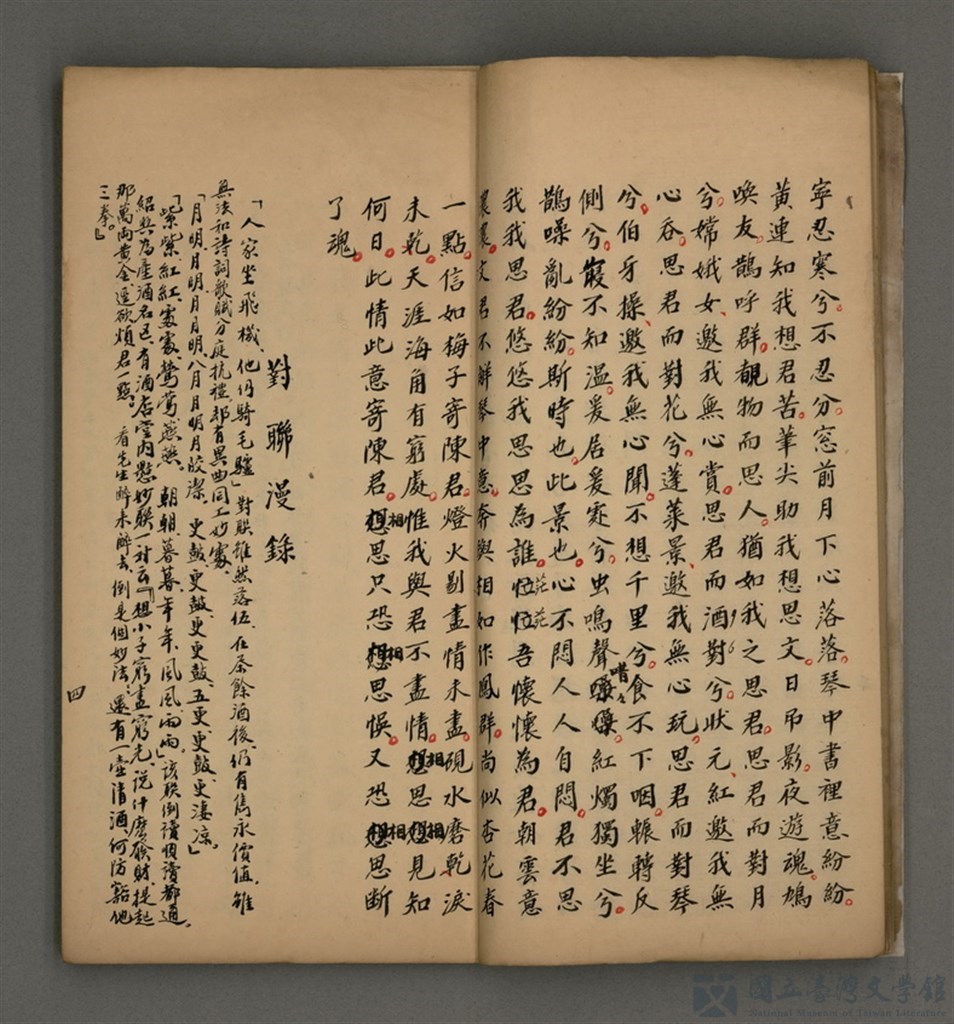 寧忍寒兮。不忍分。窓前月下心落落。琴中書裡意紛紛。
黃連知我想君苦。筆尖助我想思文。日吊影。夜遊魂。鳩
喚友。鵲呼群。覩物而思人。猶如我之思君。思君而對月
兮。嫦娥女、邀我無心賞。思君而酒對兮。狀元、紅邀我無
心吞。思君而對花兮。蓬萊景、邀我無心玩。思君而對琴
兮。伯牙操、邀我無心聞。不想千里兮。食不下咽。輾轉反
側兮。寢不知溫。爰居爰處兮。虫鳴聲嘈々。紅燭獨坐兮。
鵲噪亂紛紛。斯時也。此景也。心不悶人人自悶。君不思
我我思君。悠悠我思思為誰。茫茫吾懷懷為君。朝雲意
文君不解琴中意。奔與相如作鳳群。尚似杏花春
一點。信如梅子寄陳君。燈火剔盡情未盡。硯水磨乾淚
未乾。天涯海角有窮處。惟我與君不盡情。相思相見知
何日。此情此意寄陳君。相思只恐相思悞。又恐相思斷
了魂。
對聯漫錄
「人家坐飛機、他仍騎毛驢」對聯雖然落伍、在茶餘酒後、仍有雋永價值、雖
與詩和詩詞歌賦分庭抗禮、却有異曲同工妙處、
「月明、月明、月月明、八月月明明月皎潔、更鼓、更鼓、更更鼓、五更更鼓、更淒凉。」
「紫紫紅紅、處處鶯鶯燕燕、朝朝暮暮、年年風風雨雨」該聯倒讀順讀都通。
紹興為產酒名邑、有酒店堂內懸妙聯一對云「想小子窮盡窮光、說什麼發財、提起
那萬両黃金還欲煩君一點。看先生醉未醉去、倒是個妙法、還有一壺清酒何防豁他
三拳。」
四
國立臺灣文学館
National Museum of Taiwan Literature